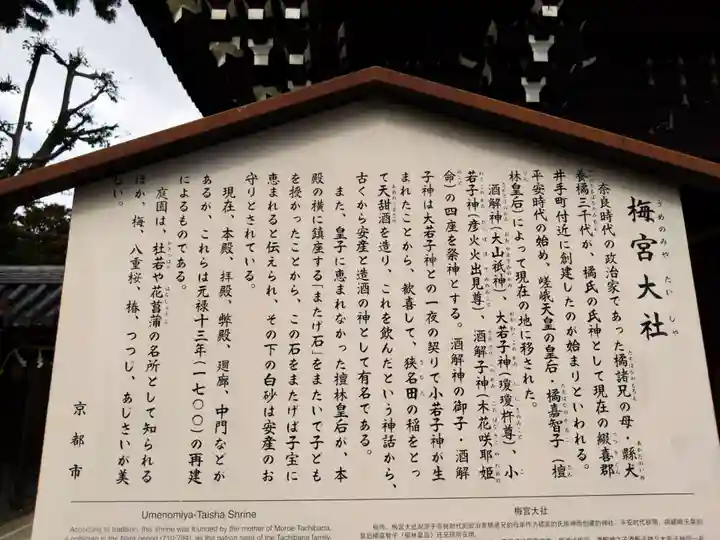 梅宮大社
うめのみや たいしゃ
奈良時代の政治家であった橘諸兄の母・縣犬
養橘三千代が、橘氏の氏神として現在の綴喜郡
井手町付近に創建したのが始まりといわれる。
平安時代の始め、嵯峨天皇の皇后・橘嘉智子(檀
林皇后)によって現在の地に移された。
酒解神(大山祇神)、大若子神(瓊瓊杵尊)、小
若子神(彦火火出見尊)、酒解子神(木花咲耶姫
命)の四座を祭神とする。酒解神の御子・酒解
子神は大若子神との一夜の契りで小若子神が生
まれたことから、歓喜して、狭名田の稲をとっ
て天甜酒を造り、これを飲んだという神話から、
古くから安産と造酒の神として有名である。
また、皇子に恵まれなかった檀林皇后が、本
殿の横に鎮座する「またげ石」をまたいで子ども
を授かったことから、この石をまたげば子宝に
恵まれると伝えられ、その下の白砂は安産のお
守りとされている。
現在、本殿、拝殿、弊殿、廻廊、中門などが
あるが、これらは元禄十三年(一七〇〇)の再建
によるものである。
庭園は、杜若や花菖蒲の名所として知られる
ほか、梅、八重桜、椿、つつじ、あじさいが美
しい。
京都市
Umenomiya-Taisha Shrine
According to tradition, this shrine was founded by the mother of Moroe Tachibana,
梅宫大社